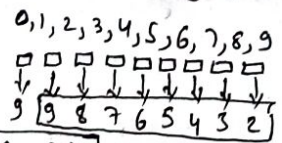 0,1,2,3,4,5,6,7,8,9
9 9 8 7 6 5 4 3 2